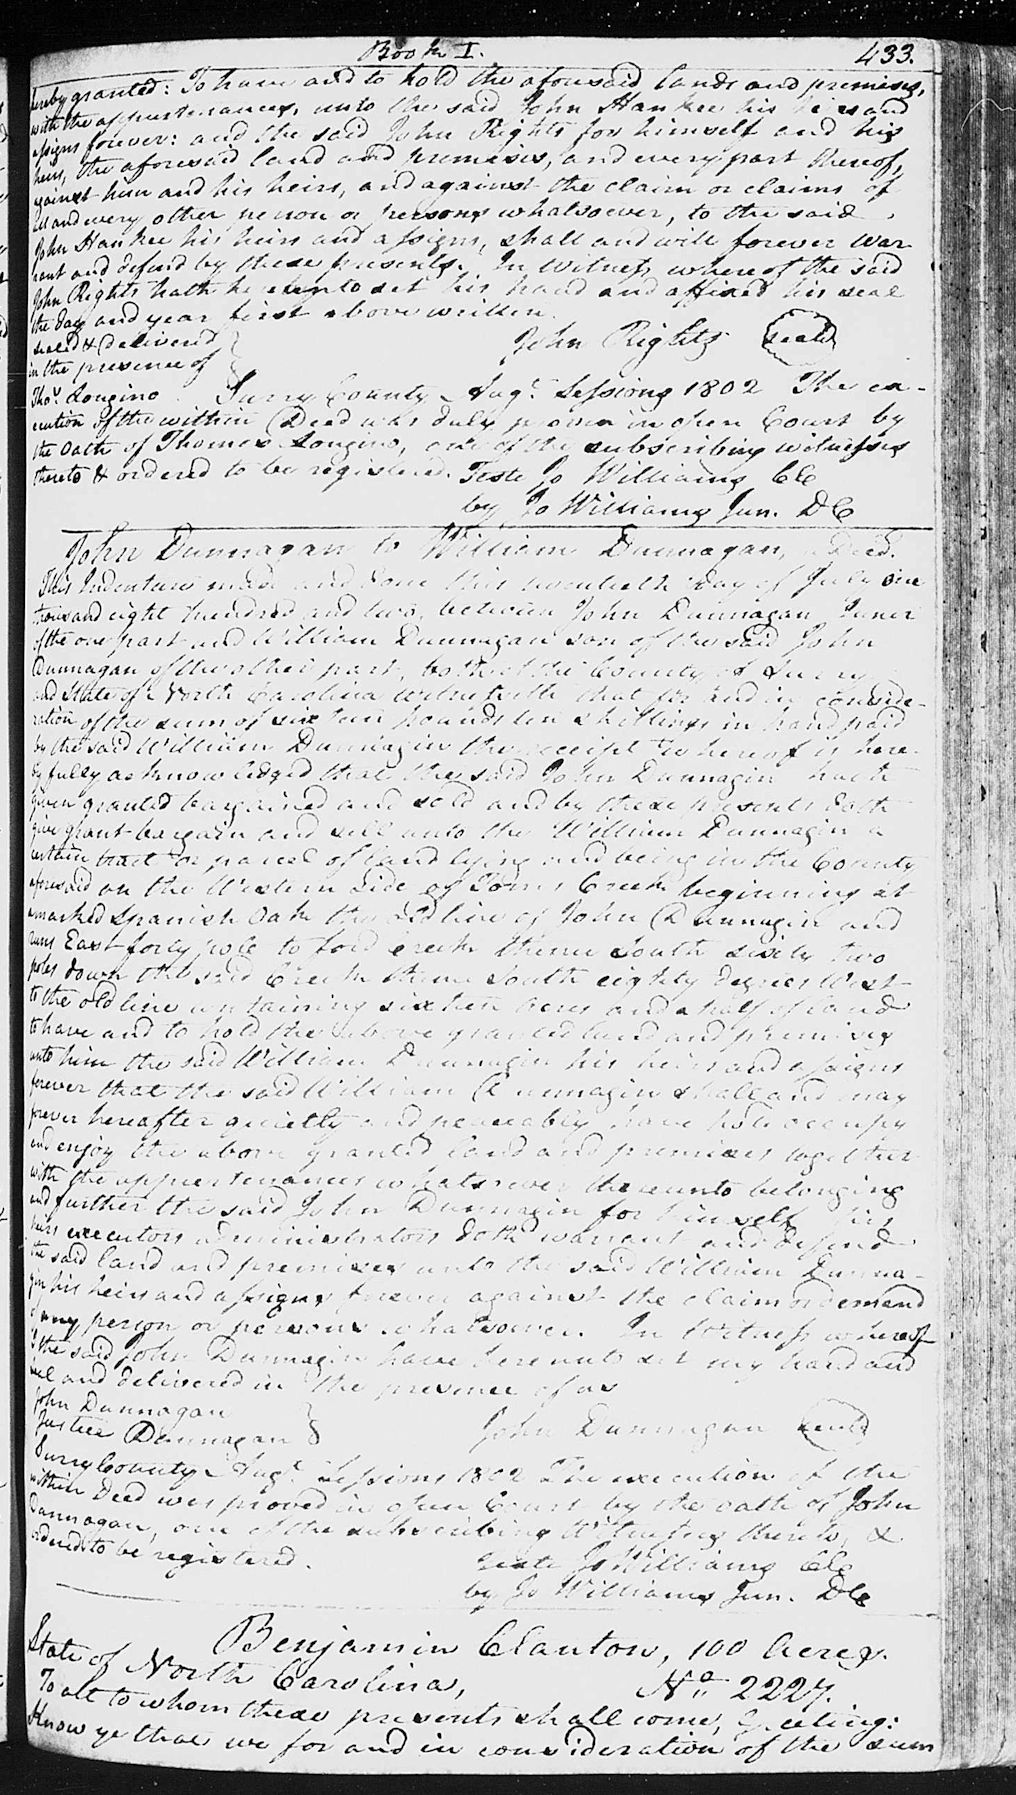 Book I. 433.
hereby granted: To have and to hold the aforesaid lands and premises,
with the appurtenances, unto the said John Hankee his heirs and
assigns forever: and the said John Rights for himself and his
heirs, the aforesaid land and premises, and every part thereof,
against him and his heirs, and against the claim or claims of
all and every other person or persons whatsoever, to the said
John Hankee his heirs and assigns, shall and will forever War-
rant and defend by these presents. In Witness whereof the said
John Rights hath hereunto set his hand and affixed his seal
the day and year first above written.
sealed & delivered John Rights seal
in the presence of
Thos. Longino Surry County Augt. Sessions 1802 The ex-
ecution of the within Deed was duly proven in open Court by
the Oath of Thomas Longino, one of the subscribing witnesses
thereto & ordered to be registered. Teste Jo Williams CC
by Jo Williams Jun. DC
John Dunnagan to William Dunnagan, Deed.
This Indenture made and done this twentieth day of July one
thousand eight hundred and two, between John Dunnagan
of the one part and William Dunnagan son of the said John
Dunnagan of the other part, both of the County of Surry
and State of North Carolina witnesseth that for and in conside-
ration of the sum of sixteen pounds ten shillings in hand paid
by the said William Dunnagin the receipt whereof is here-
by fully acknowledged that the said John Dunnagin hath
given granted bargained and sold and by these presents doth
give grant bargain and sell unto the William Dunnagin a
certain tract or parcel of land lying and being in the County
aforesaid on the Western side of Toms Creek beginning at
a marked Spanish Oak the old line of John Dunnagin and
runs East forty pole to said creek thence South sixty two
poles down the said Creek thence South eighty degrees West
to the old line containing sixteen acres and a half of land
to have and to hold the above granted land and premises
unto him the said William Dunnagin his heirs and assigns
forever that the said William Dunnagin shall and may
forever hereafter quietly and peaceably have hold occupy
and enjoy the above granted land and premises together
with the appurtenances whatsoever thereunto belonging
and further the said John Dunnagin for himself his
heirs executors administrators doth warrant and defend
the said land and premises unto the said William Dunna-
gin his heirs and assigns forever against the claim or demand
of any person or persons whatsoever. In Witness whereof
I the said John Dunnagin have hereunto set my hand and
seal and delivered in the presence of us
John Dunnagan
Justice Dunnagan John Dunnagan seal
Surry County Augt. Sessions 1802 The execution of the
within Deed was proved in open Court by the oath of John
Dunnagan, one of the subscribing Witnesses thereto, &
ordered to be registered. Teste Jo Williams CC
by Jo Williams Jun. DC
Benjamin Clanton, 100 Acres.
State of North Carolina, No. 2227.
To all to whom these presents shall come, Greeting:
Know ye that we for and in consideration of the sum